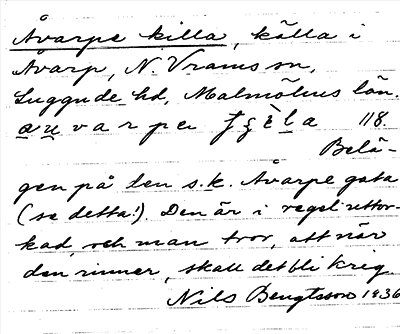 Åvarpe killa, källa i
Åvarp, N. Vrams sn,
Luggude hd, Malmöhus län.
118.
Belä-
gen på den s.k. Åvarpe gata
(se detta!). Den är i regel uttor-
kad, och man tror, att när
den rinner, skall det bli krig.
Nils Bengtsson 1936